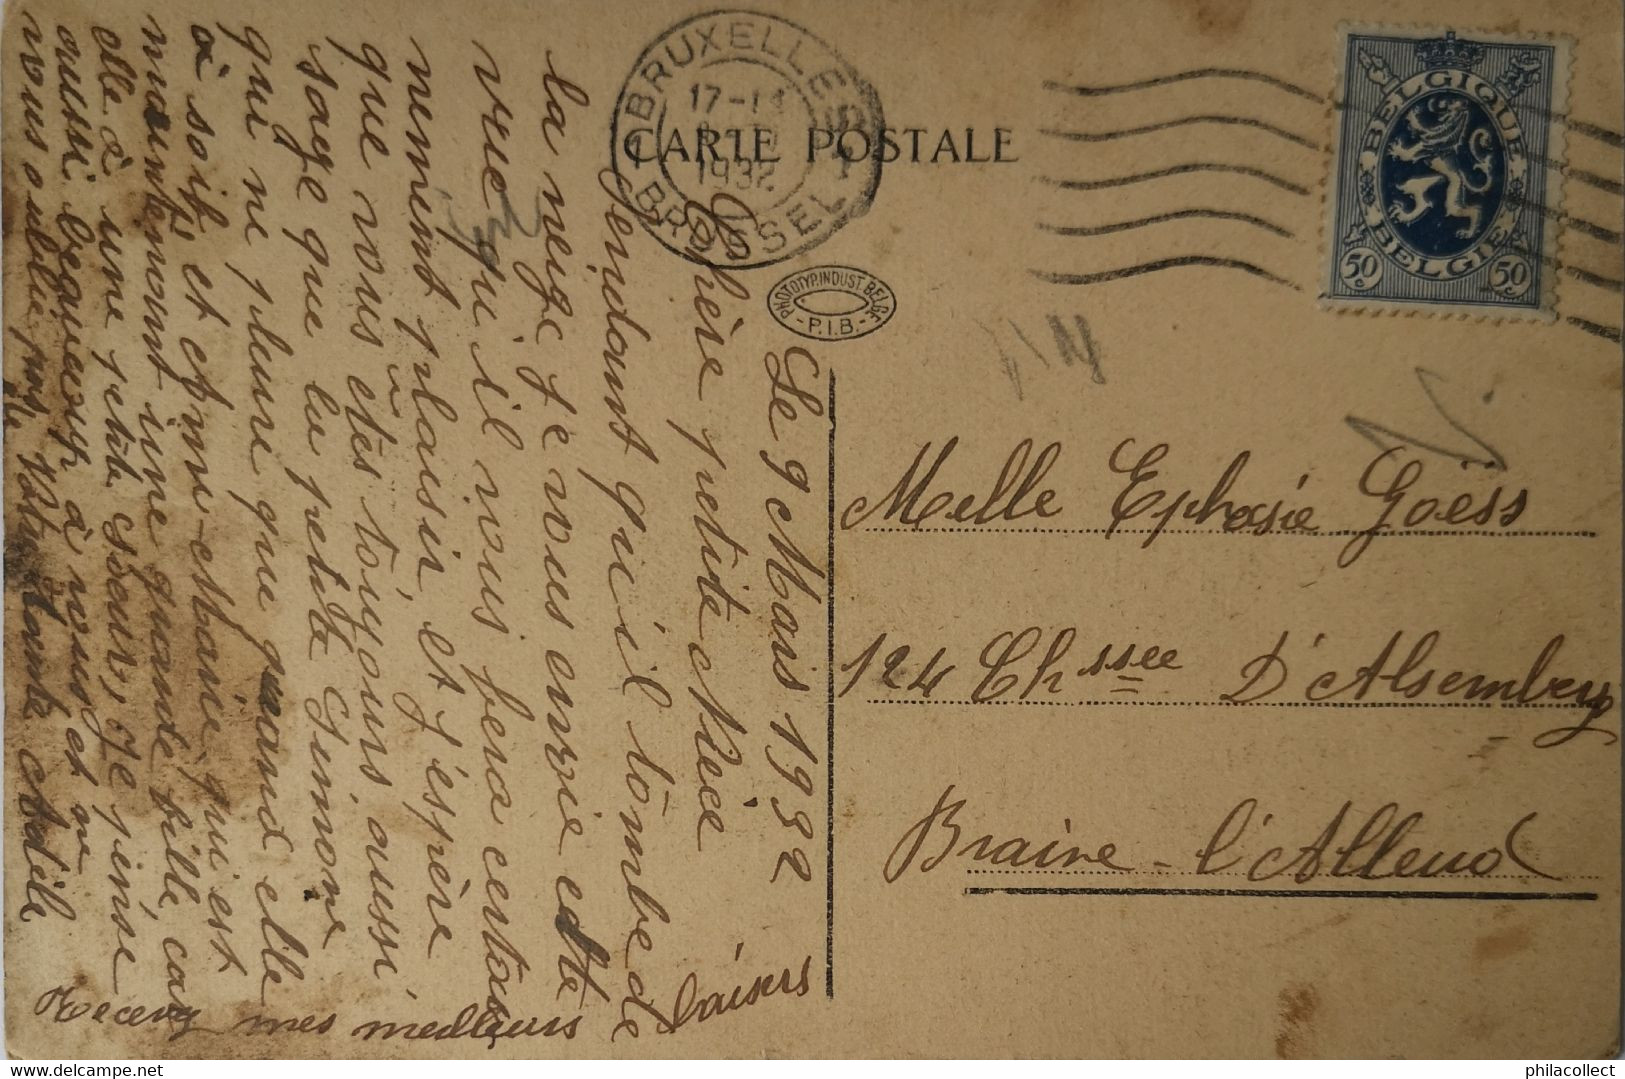 BRUXELLES 1
17-18
1932
1 BRUSSEL
CARTE POSTALE
BELGIQUE
BELGIE
50 c
50 c
PHOTOTYP. INDUST. BELGE
- P.I.B. -
Le 9 Mars 1932
Chère petite Nièce
Pendant qu'il tombe de
la neige je vous envoie cette
vue qu'il vous fera certai
nement plaisir, et j'espère
que vous êtes toujours aussi
sage que la petite Simone
qui ne pleure que quand elle
à soif et Annie-Marie, qui est
maintenant une grande fille, car
elle à une petite sœur, je pense
aussi beaucoup à vous et ne
vous oublie pas
tante Adèle
Recevez mes meilleurs baisers
Melle Ephrasie Goëss
124 Chssee D'Alsemberg
Braine-l'Alleud
philacollect